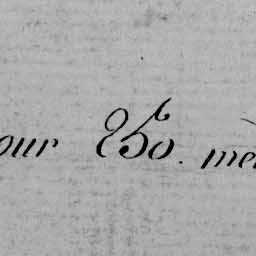 our 250. mè